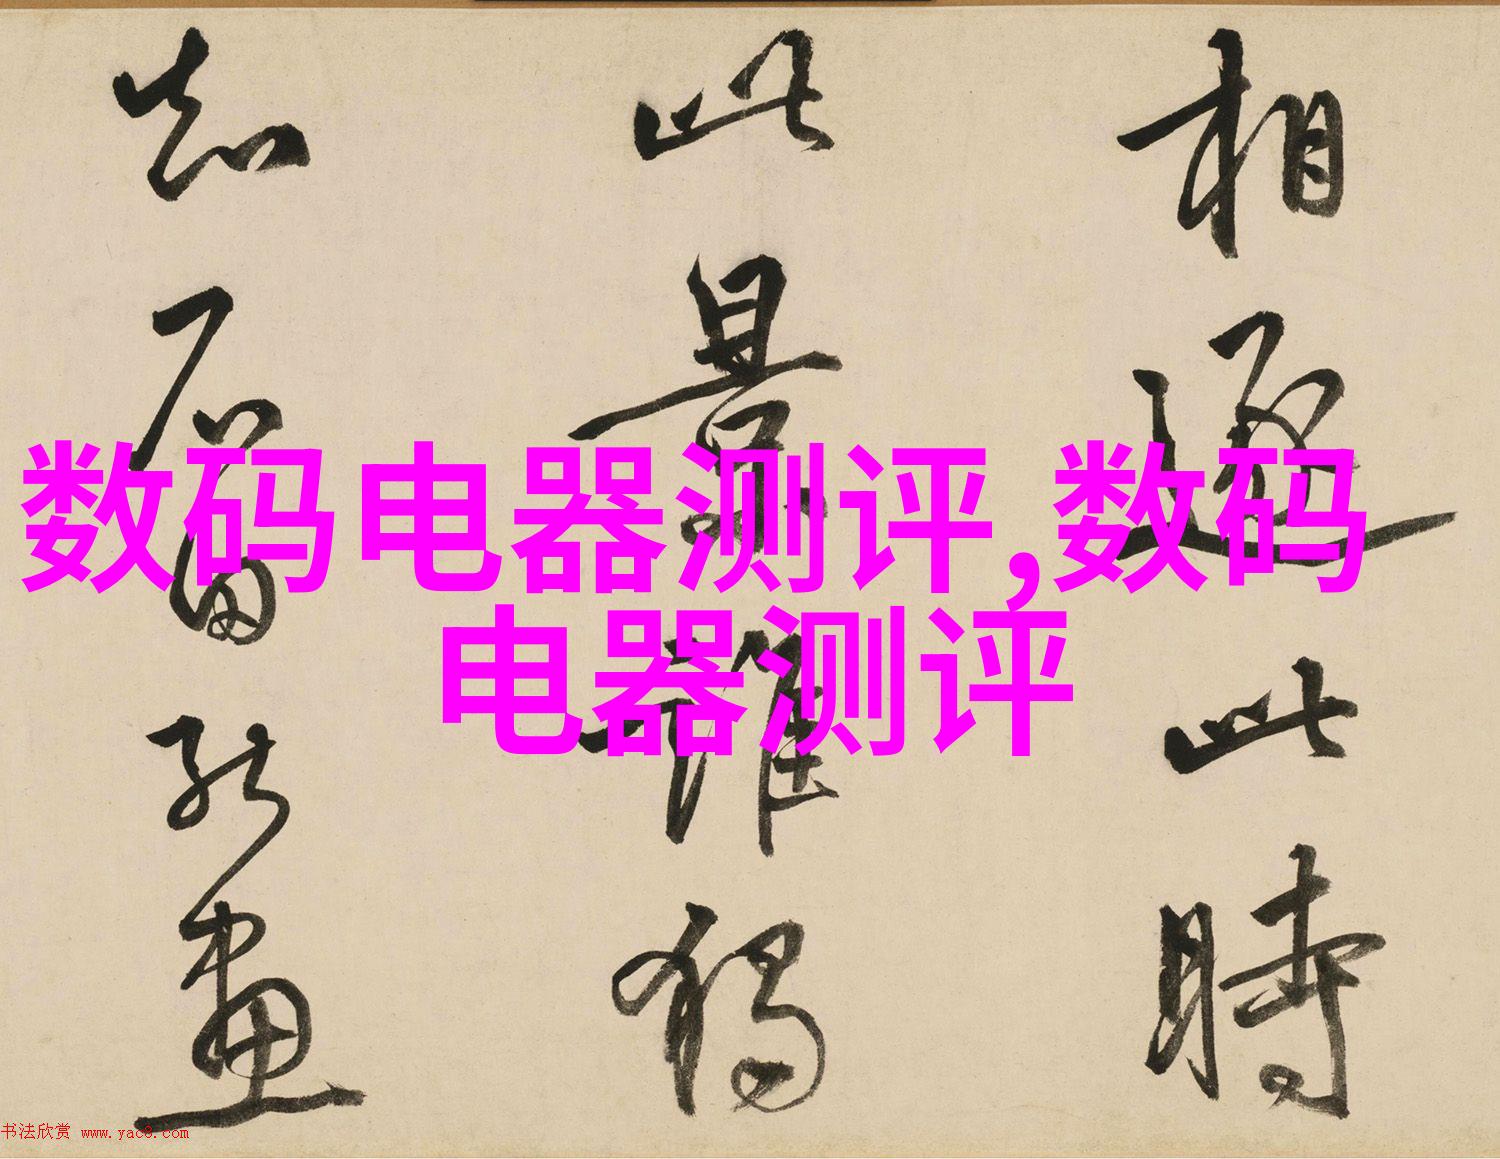 相逐此時
此景誰獨
知石田能畫
数码电器测评,数码
电器测评
书法欣赏 www.yac8.com